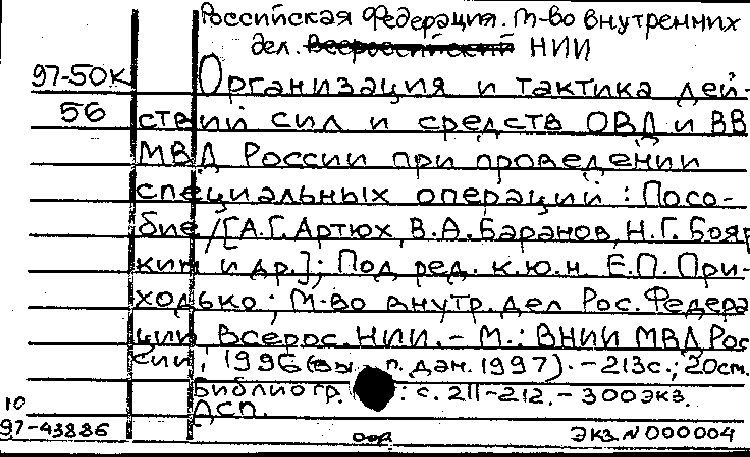 Российская Федерация. М-во внутренних
дел. Всероссийский НИИ
97-50к Организация и тактика дей-
56 ствий сил и средств ОВД и ВВ
МВД России при проведении
специальных операций : Посо-
бие / [А.Г. Артюх, В.А. Баранов, Н.Г. Бояр
кин и др.] ; Под ред. к.ю.н. Е.П. При-
ходько ; М-во внутр. дел Рос. Федера
ции, Всерос. НИИ. – М. : ВНИИ МВД Рос
сии, 1996 (вы п. дан. 1997). – 213с. ; 20см.
Библиогр. : с. 211-212. – 300экз.
ДСП.
10
97-43886
Экз. N 000004